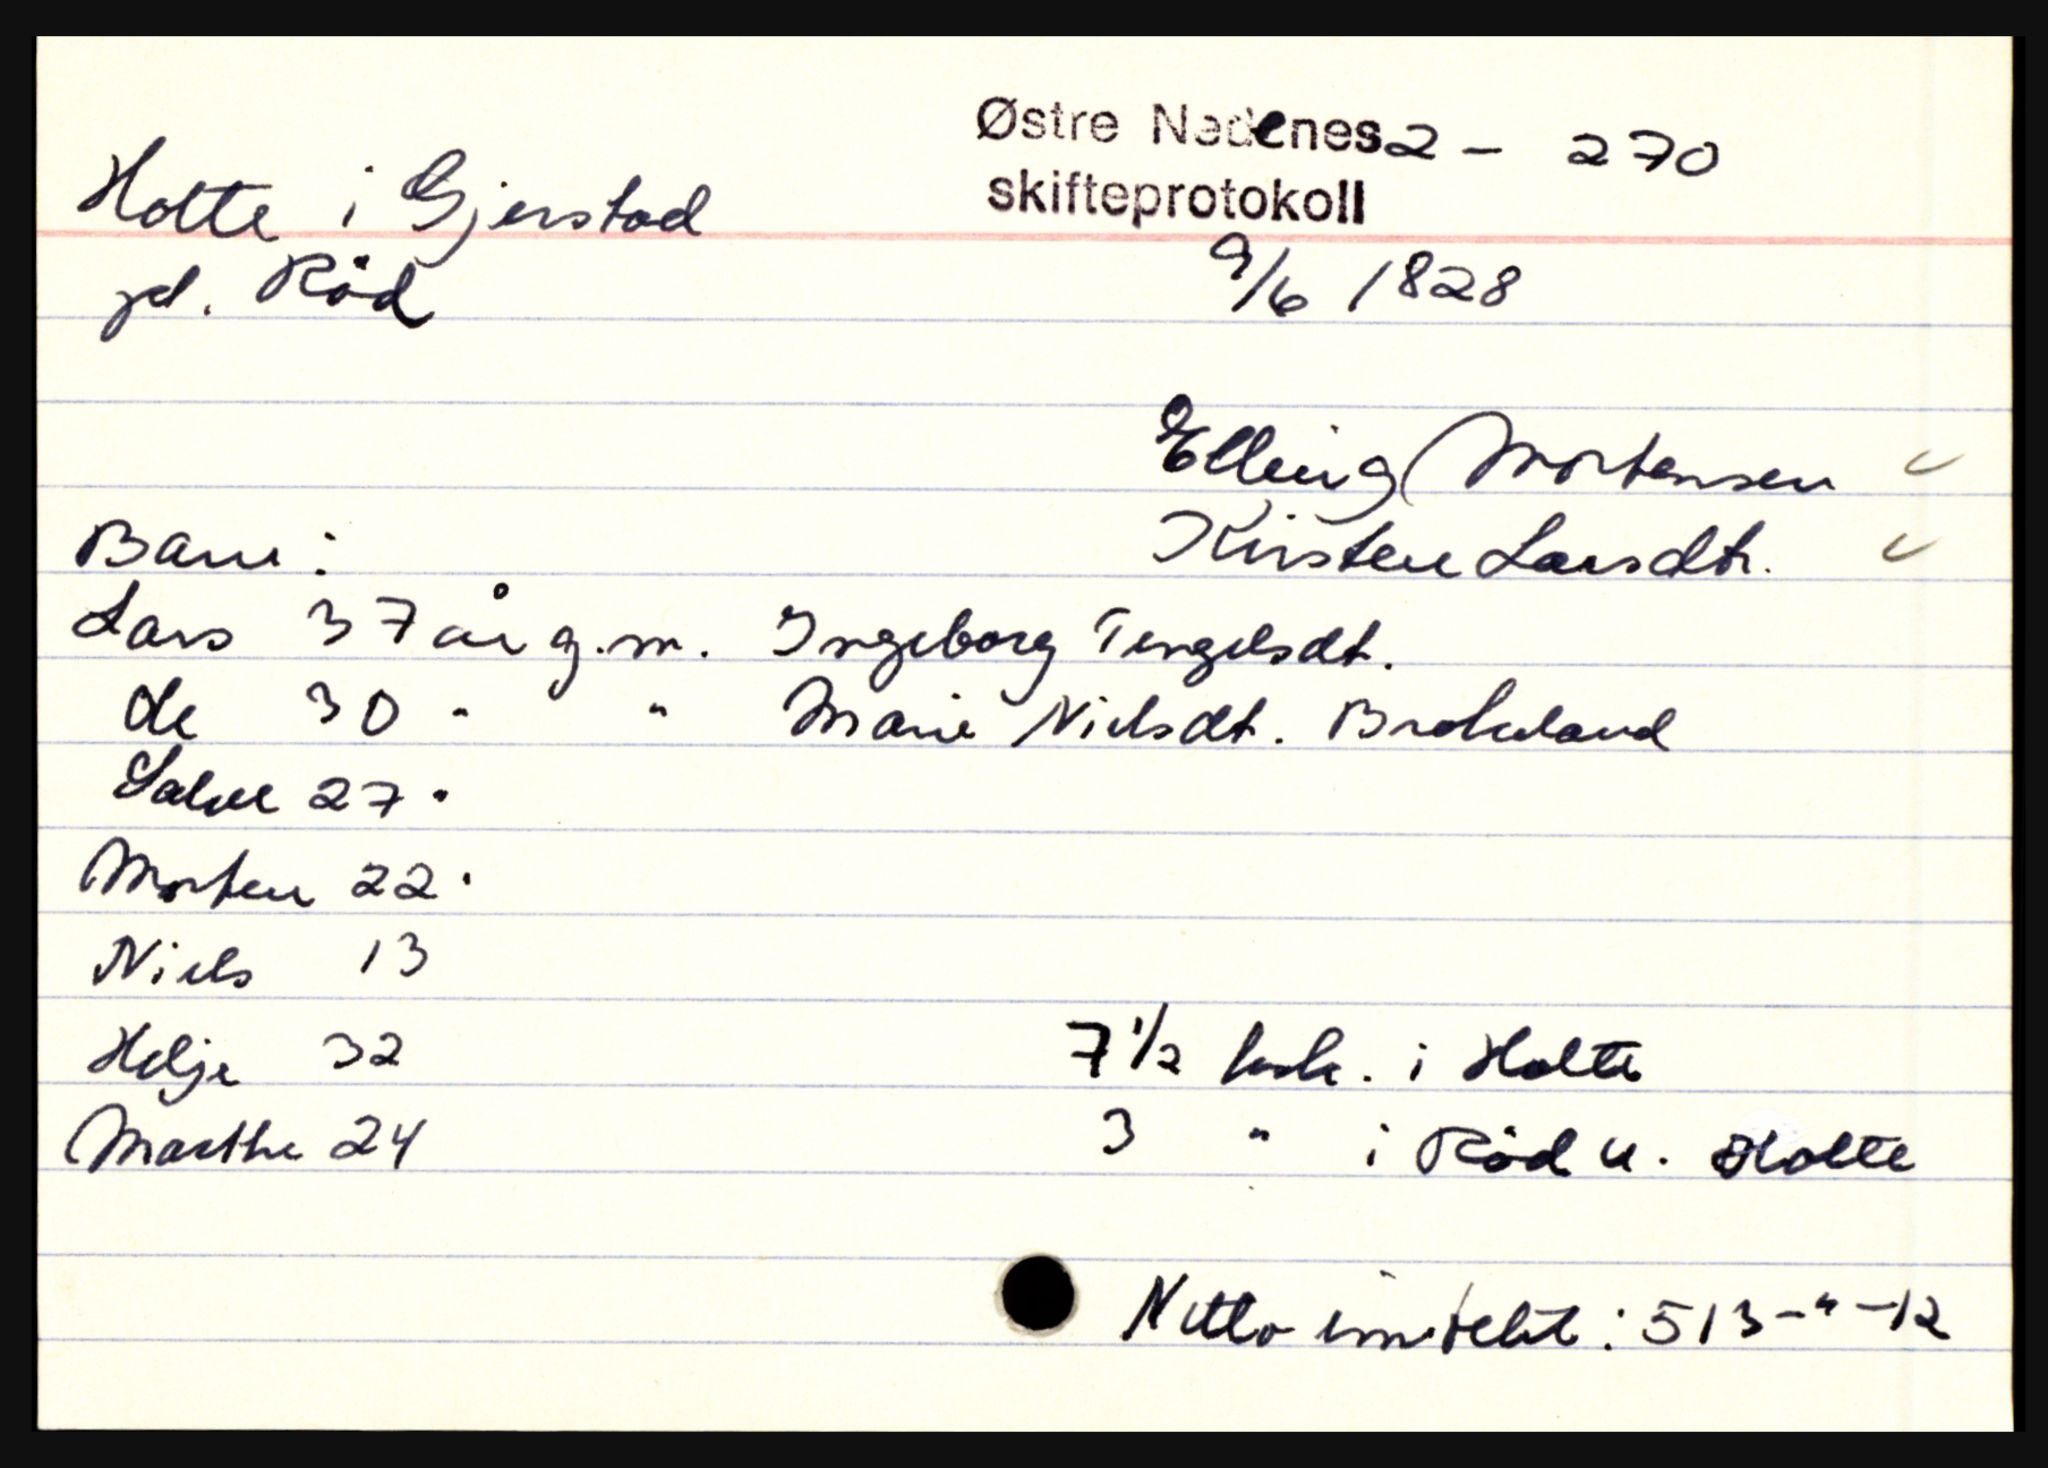 Østre Nedenes 2 - 270
skifteprotokoll
Holte i Gjerstad
pl. Röd
9/6 1828
Elling Mortensen
Kirsten Larsdtr.
Barn:
Lars 37 år g.m. Ingeborg Tengelsdt.
30 " " Marie Nielsdt. Brokeland
Salve 27 "
Morten 22 "
Niels 13
Helje 32
7 1/2 ksk. i Holte
Marthe 24
3 " i Röd u. Holte
Netto inntekt: 513-"-12